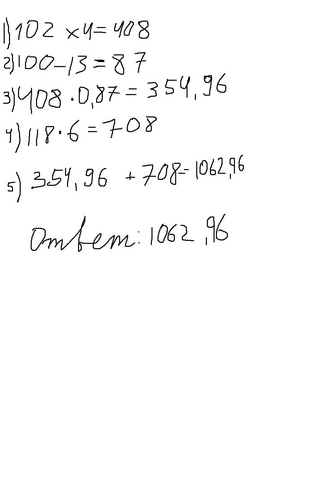 1) 102 × 4 = 408
2) 100 - 13 = 87
3) 408 · 0,87 = 354,96
4) 118 · 6 = 708
5) 354,96 + 708 = 1062,96
Ответ: 1062,96